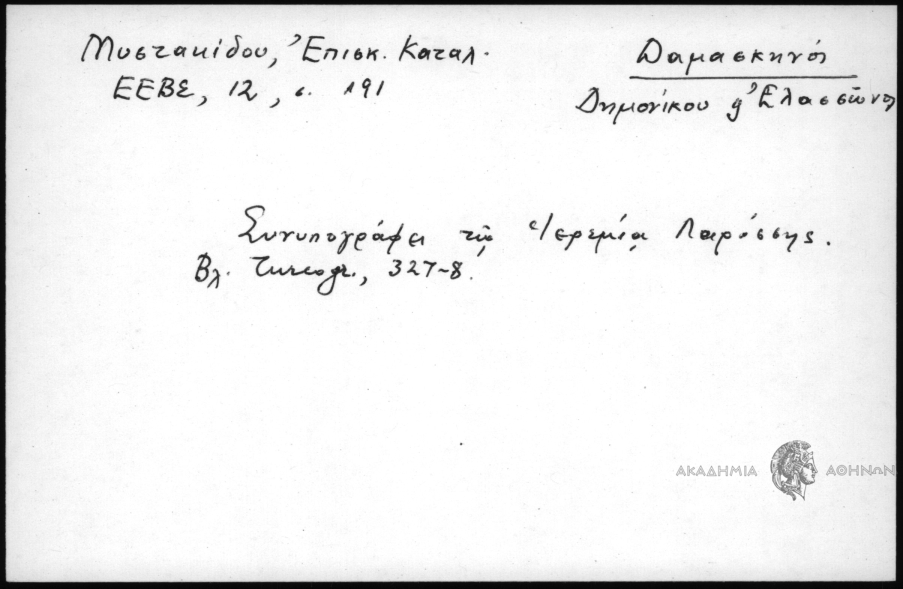 Μυστακίδου, Ἐπισκ. Καταλ.
ΕΕΒΣ, 12, σ. 191
Δαμασκηνός
Δημονίκου & Ἐλασσῶνος
Συνυπογράφει τῷ Ἱερεμίᾳ Λαρίσσης.
Βλ. Turcogr., 327-8.
ΑΚΑΔΗΜΙΑ ΑΘΗΝΩΝ